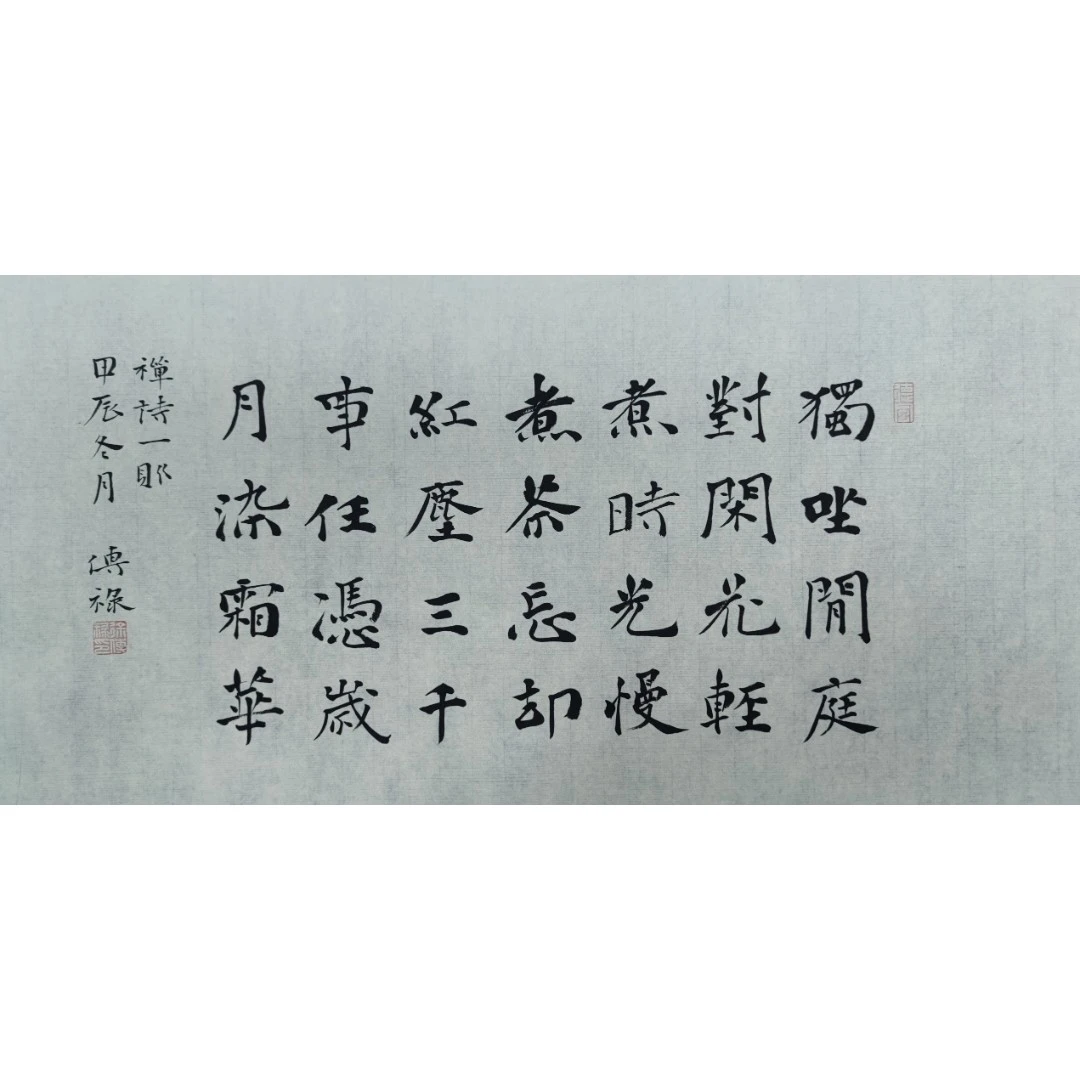 獨坐閒庭
對閑花輕
煮時光慢
煮茶忘却
紅塵三千
事任憑歲
月染霜華
禪詩一
甲辰冬月 傳祿